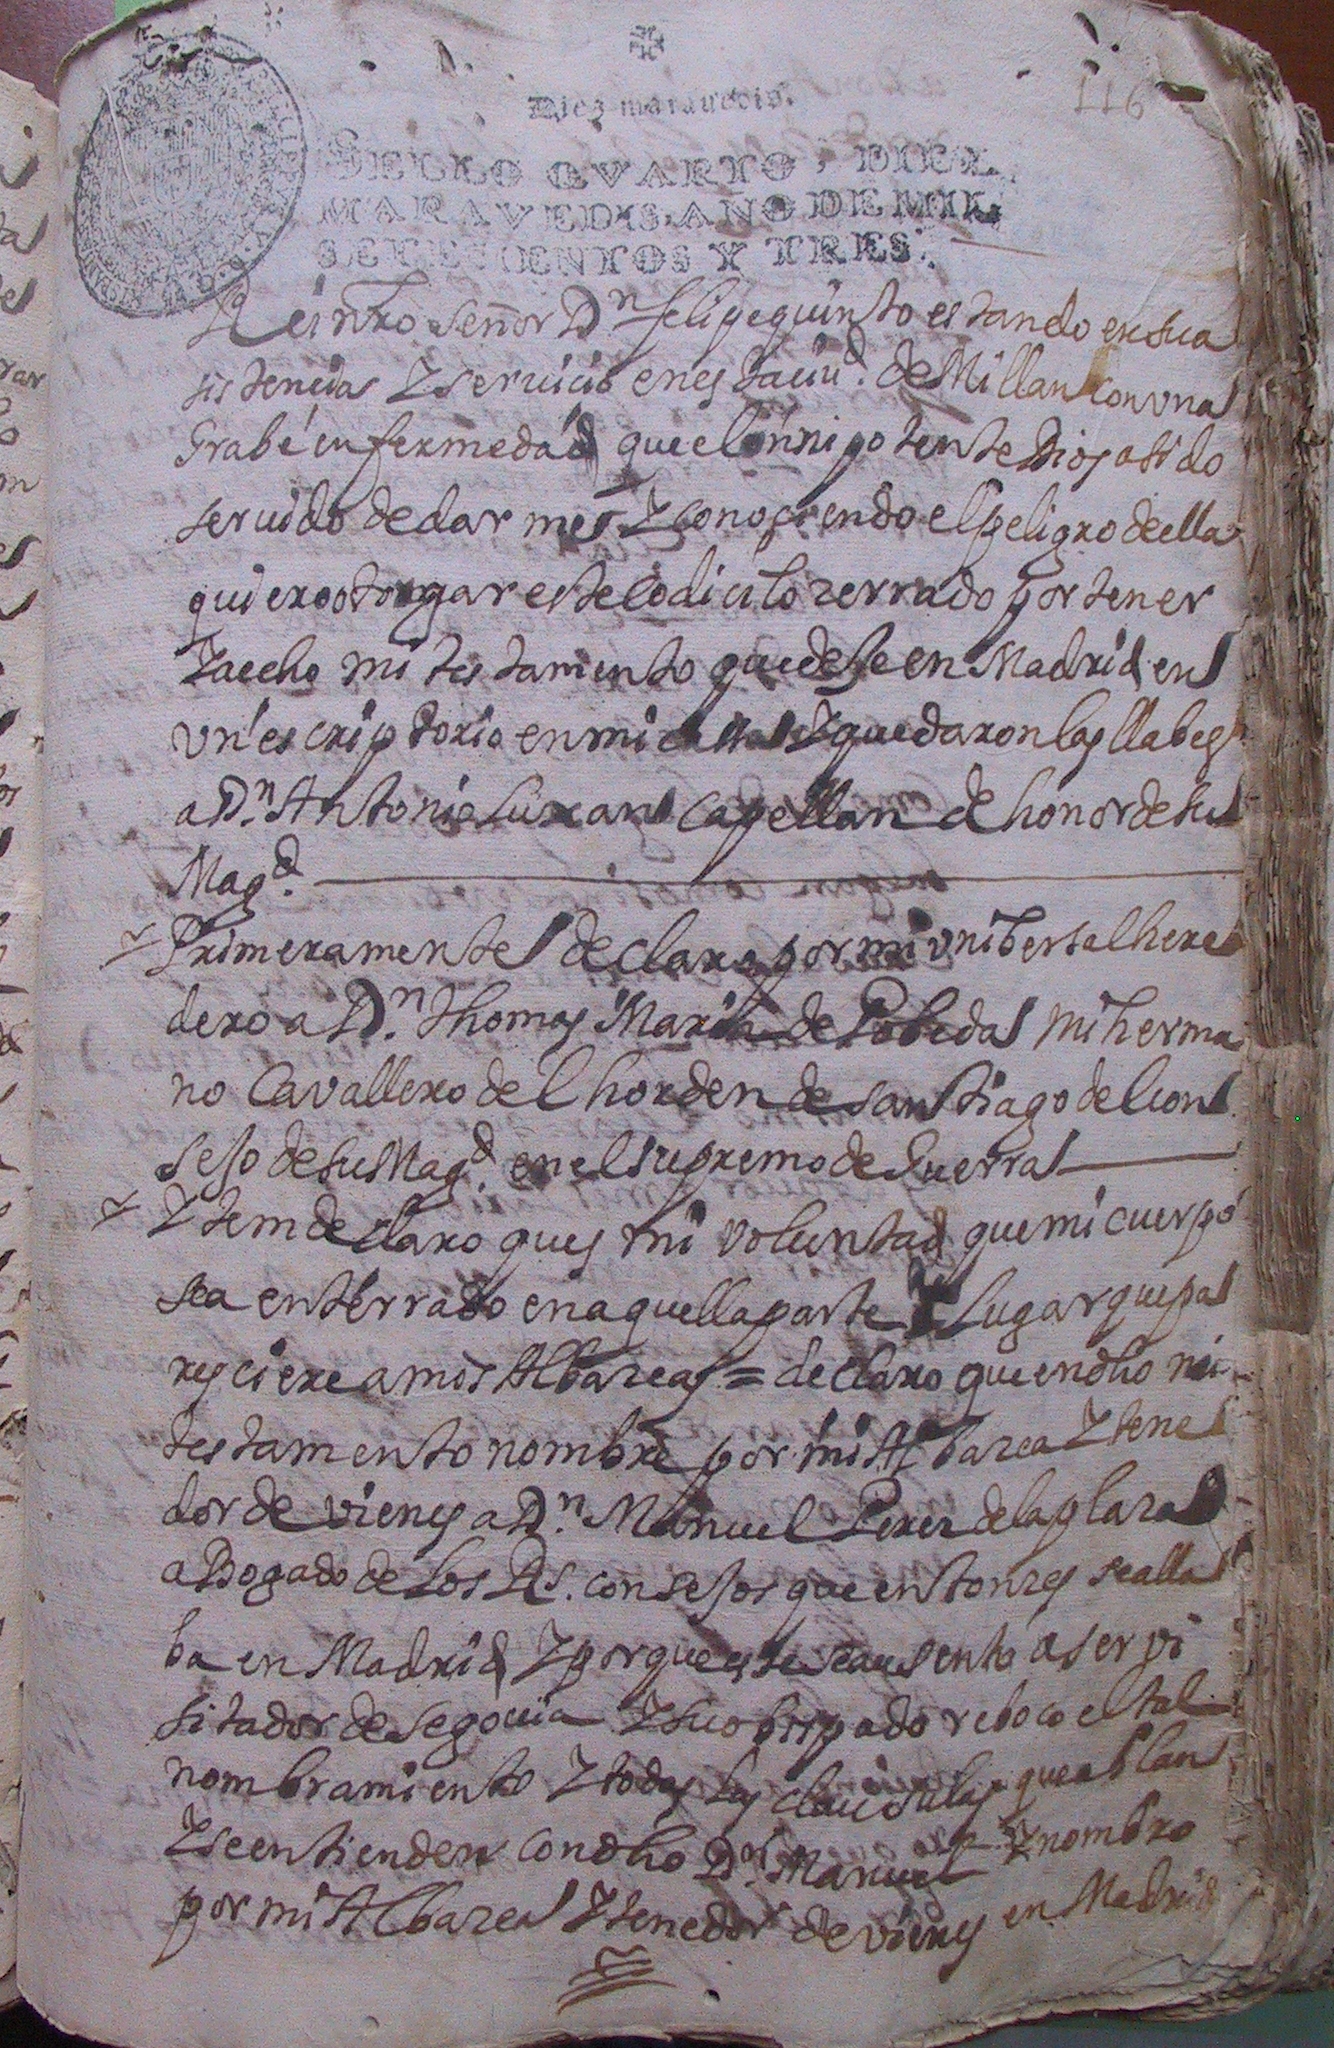 116
Diez marauedis.
SELLO QVARTO, DIEZ
MARAVEDIS, AÑO DE MIL
SETECIENTOS Y TRES.
Rei nr̃o señor Dn felipe quinto estando en su a
sistencia Y seruicio en esta ciud. de Millan con vna
Grabe enfermedad que el omnipotente Dios a sido
seruido de darme Y conosciendo el peligro de ella
quiero otorgar este codicilo zerrado por tener
Y a echo mi testamento que deje en Madrid en
vn escriptorio en mi casa Y quedaron las llabes
a Dn. Antonio Luxan Capellan de honor de su
Magd.
Primeramente declaro por mi vnibersal here
dero a Dn. Thomas Maria de Pobeda mi herma
no Cavallero del horden de santiago del con
sejo de su Magd. en el supremo de Guerra
Y tem declaro ques mi voluntad que mi cuerpo
sea enterrado en aquella parte Y Lugar que pa
resciere a mis Albazeas = declaro que en dho mi
testamento nombre por mi Albazea Y tene
dor de vienes a Dn. Manuel Perez de la plaza
aBogado de los Rs. consejos que entonzes se alla
ba en Madrid Y porque este se ausento a ser vi
sitador de segouia Y su obispado reboco el tal
nombramiento Y todas las clausulas que ablan
Y se entienden con dho Dn. Manuel Y nombro
por mi Albazea Y tenedor de vienes en Madrid